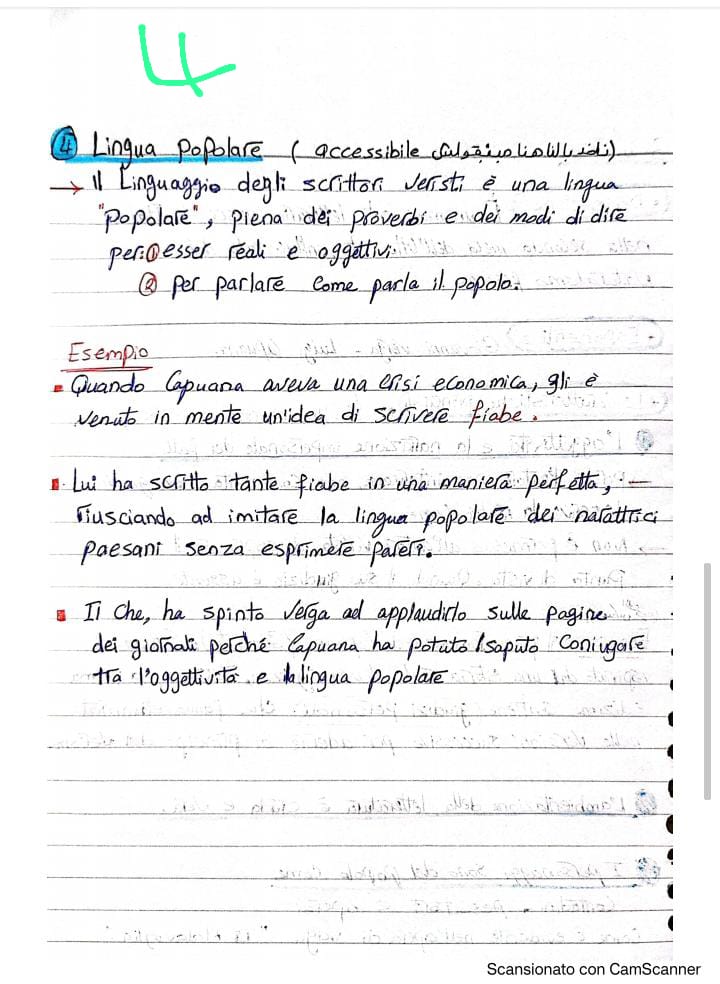 4
4 Lingua Popolare ( accessibile ناخد بالنا هنا مبنقولش)
→ Il Linguaggio degli scrittori veristi è una lingua
"popolare", piena dei proverbi e dei modi di dire
per ① esser reali e oggettivi.
② per parlare come parla il popolo.
Esempio
Quando Capuana aveva una crisi economica, gli è
venuto in mente un'idea di scrivere fiabe.
Lui ha scritto tante fiabe in una maniera perfetta, —
riusciando ad imitare la lingua popolare dei narattrici
paesani senza esprimere pareri.
Il che, ha spinto Verga ad applaudirlo sulle pagine
dei giornali perché Capuana ha potuto / saputo coniugare
tra l'oggettività e la lingua popolare
Scansionato con CamScanner